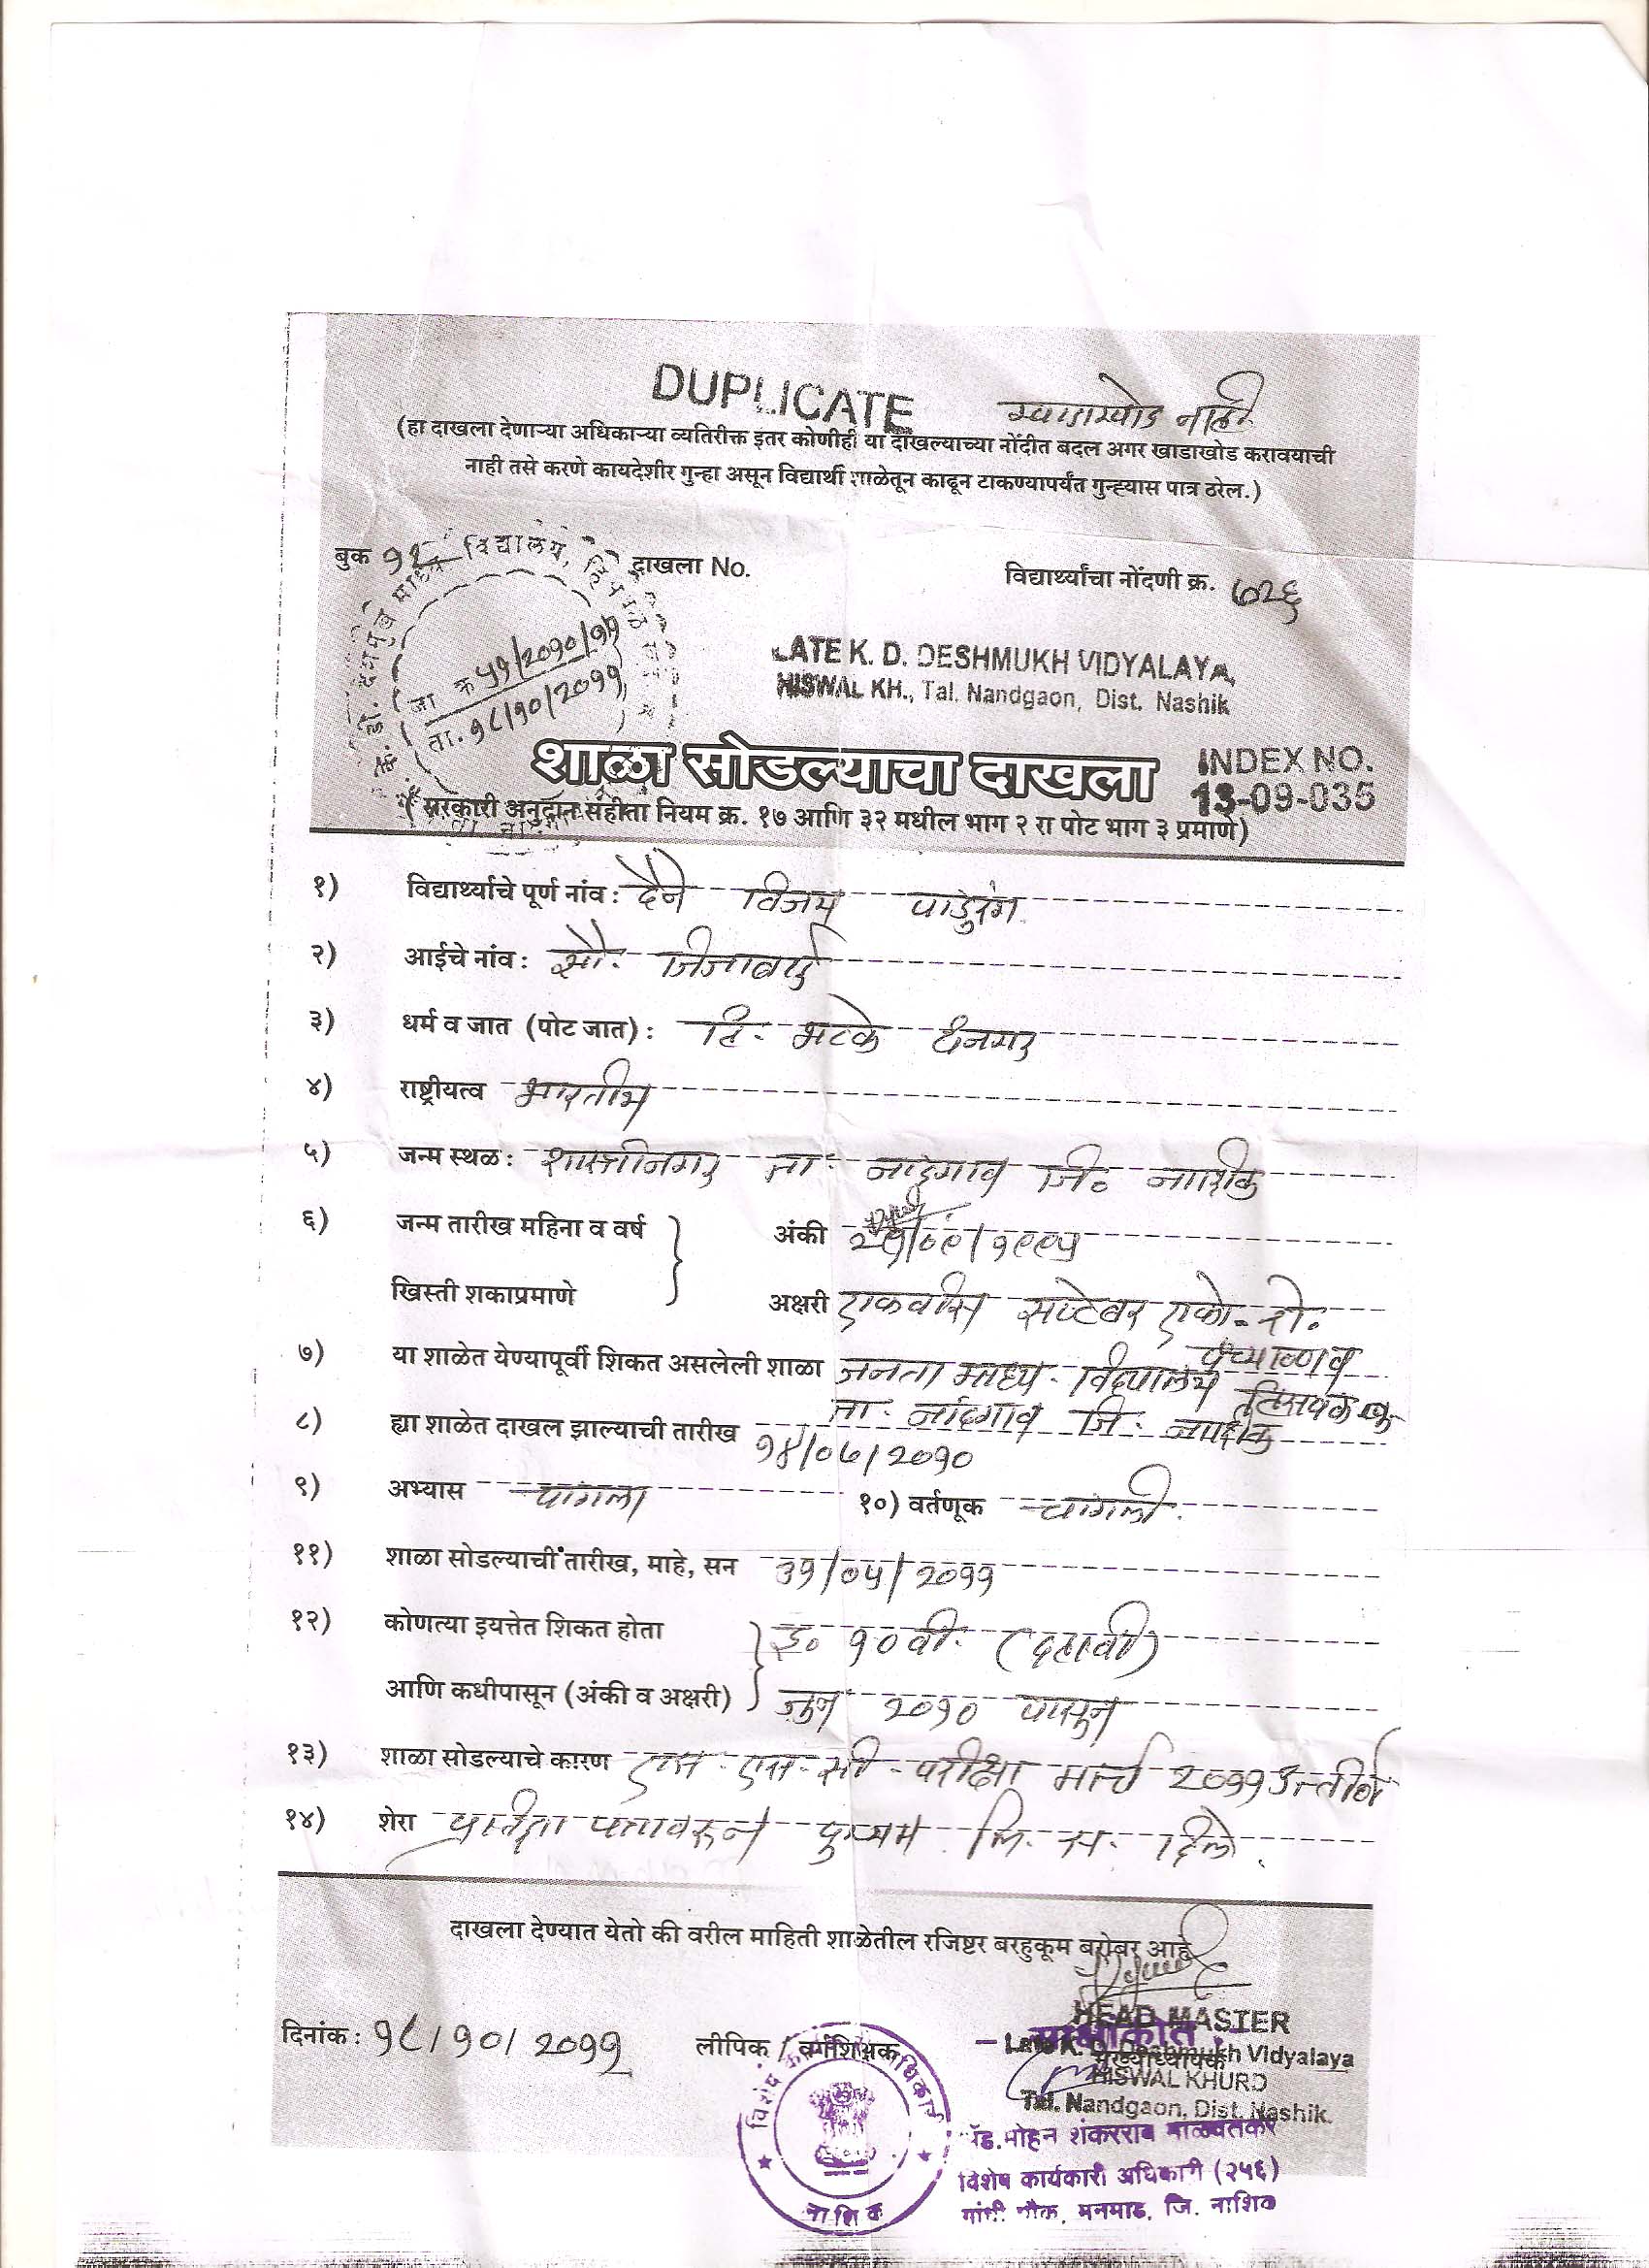 DUPLICATE
खाडाखोड नाही
(हा दाखला देणाऱ्या अधिकाऱ्या व्यतिरीक्त इतर कोणीही या दाखल्याच्या नोंदीत बदल अगर खाडाखोड करावयाची
नाही तसे करणे कायदेशीर गुन्हा असून विद्यार्थी शाळेतून काढून टाकण्यापर्यंत गुन्ह्यास पात्र ठरेल.)
बुक दाखला No. विद्यार्थ्यांचा नोंदणी क्र. ७२६
जा क्र ५१/२०१०/११
ता. १८/१०/२०११
LATE K. D. DESHMUKH VIDYALAYA,
HISWAL KH., Tal. Nandgaon, Dist. Nashik
शाळा सोडल्याचा दाखला
INDEX NO.
13-09-035
(सरकारी अनुदान संहीता नियम क्र. १७ आणि ३२ मधील भाग २ रा पोट भाग ३ प्रमाणे)
१) विद्यार्थ्याचे पूर्ण नांव : दैने विजय पांडुरंग
२) आईचे नांव : सौ. जिजाबाई
३) धर्म व जात (पोट जात) : हि. भटके धनगर
४) राष्ट्रीयत्व भारतीय
५) जन्म स्थळ : शास्त्रीनगर ता. नांदगाव जि. नाशिक
६) जन्म तारीख महिना व वर्ष अंकी २१/०९/१९९५
खिस्ती शकाप्रमाणे अक्षरी एकवीस सप्टेंबर एको. शे.
पंच्याण्णव
७) या शाळेत येण्यापूर्वी शिकत असलेली शाळा जनता माध्य. विद्यालय
ता. नांदगाव जि. नाशिक
८) ह्या शाळेत दाखल झाल्याची तारीख १४/०७/२०१०
९) अभ्यास चांगला १०) वर्तणूक चांगली.
११) शाळा सोडल्याची तारीख, माहे, सन ३१/०५/२०११
१२) कोणत्या इयत्तेत शिकत होता इ. १० वी. (दहावी)
आणि कधीपासून (अंकी व अक्षरी) जुन २०१० पासुन
१३) शाळा सोडल्याचे कारण एस. एस. सी. परीक्षा मार्च २०११ उत्तीर्ण
१४) शेरा प्रतिज्ञा पत्रावरून दुय्यम दिले.
दाखला देण्यात येतो की वरील माहिती शाळेतील रजिष्टर बरहुकूम बरोबर आहे
दिनांक : १८/१०/२०११ लीपिक / वर्गशिक्षक मुख्याध्यापक
HEAD MASTER
Late K. D. Deshmukh Vidyalaya
HISWAL KHURD
Tal. Nandgaon, Dist. Nashik.
साक्षांकीत
अॅड. मोहन शंकरराव
विशेष कार्यकारी अधिकारी (२५६)
गांधी चौक, मनमाड, जि. नाशिक
विशेष कार्यकारी अधिकारी
नाशिक